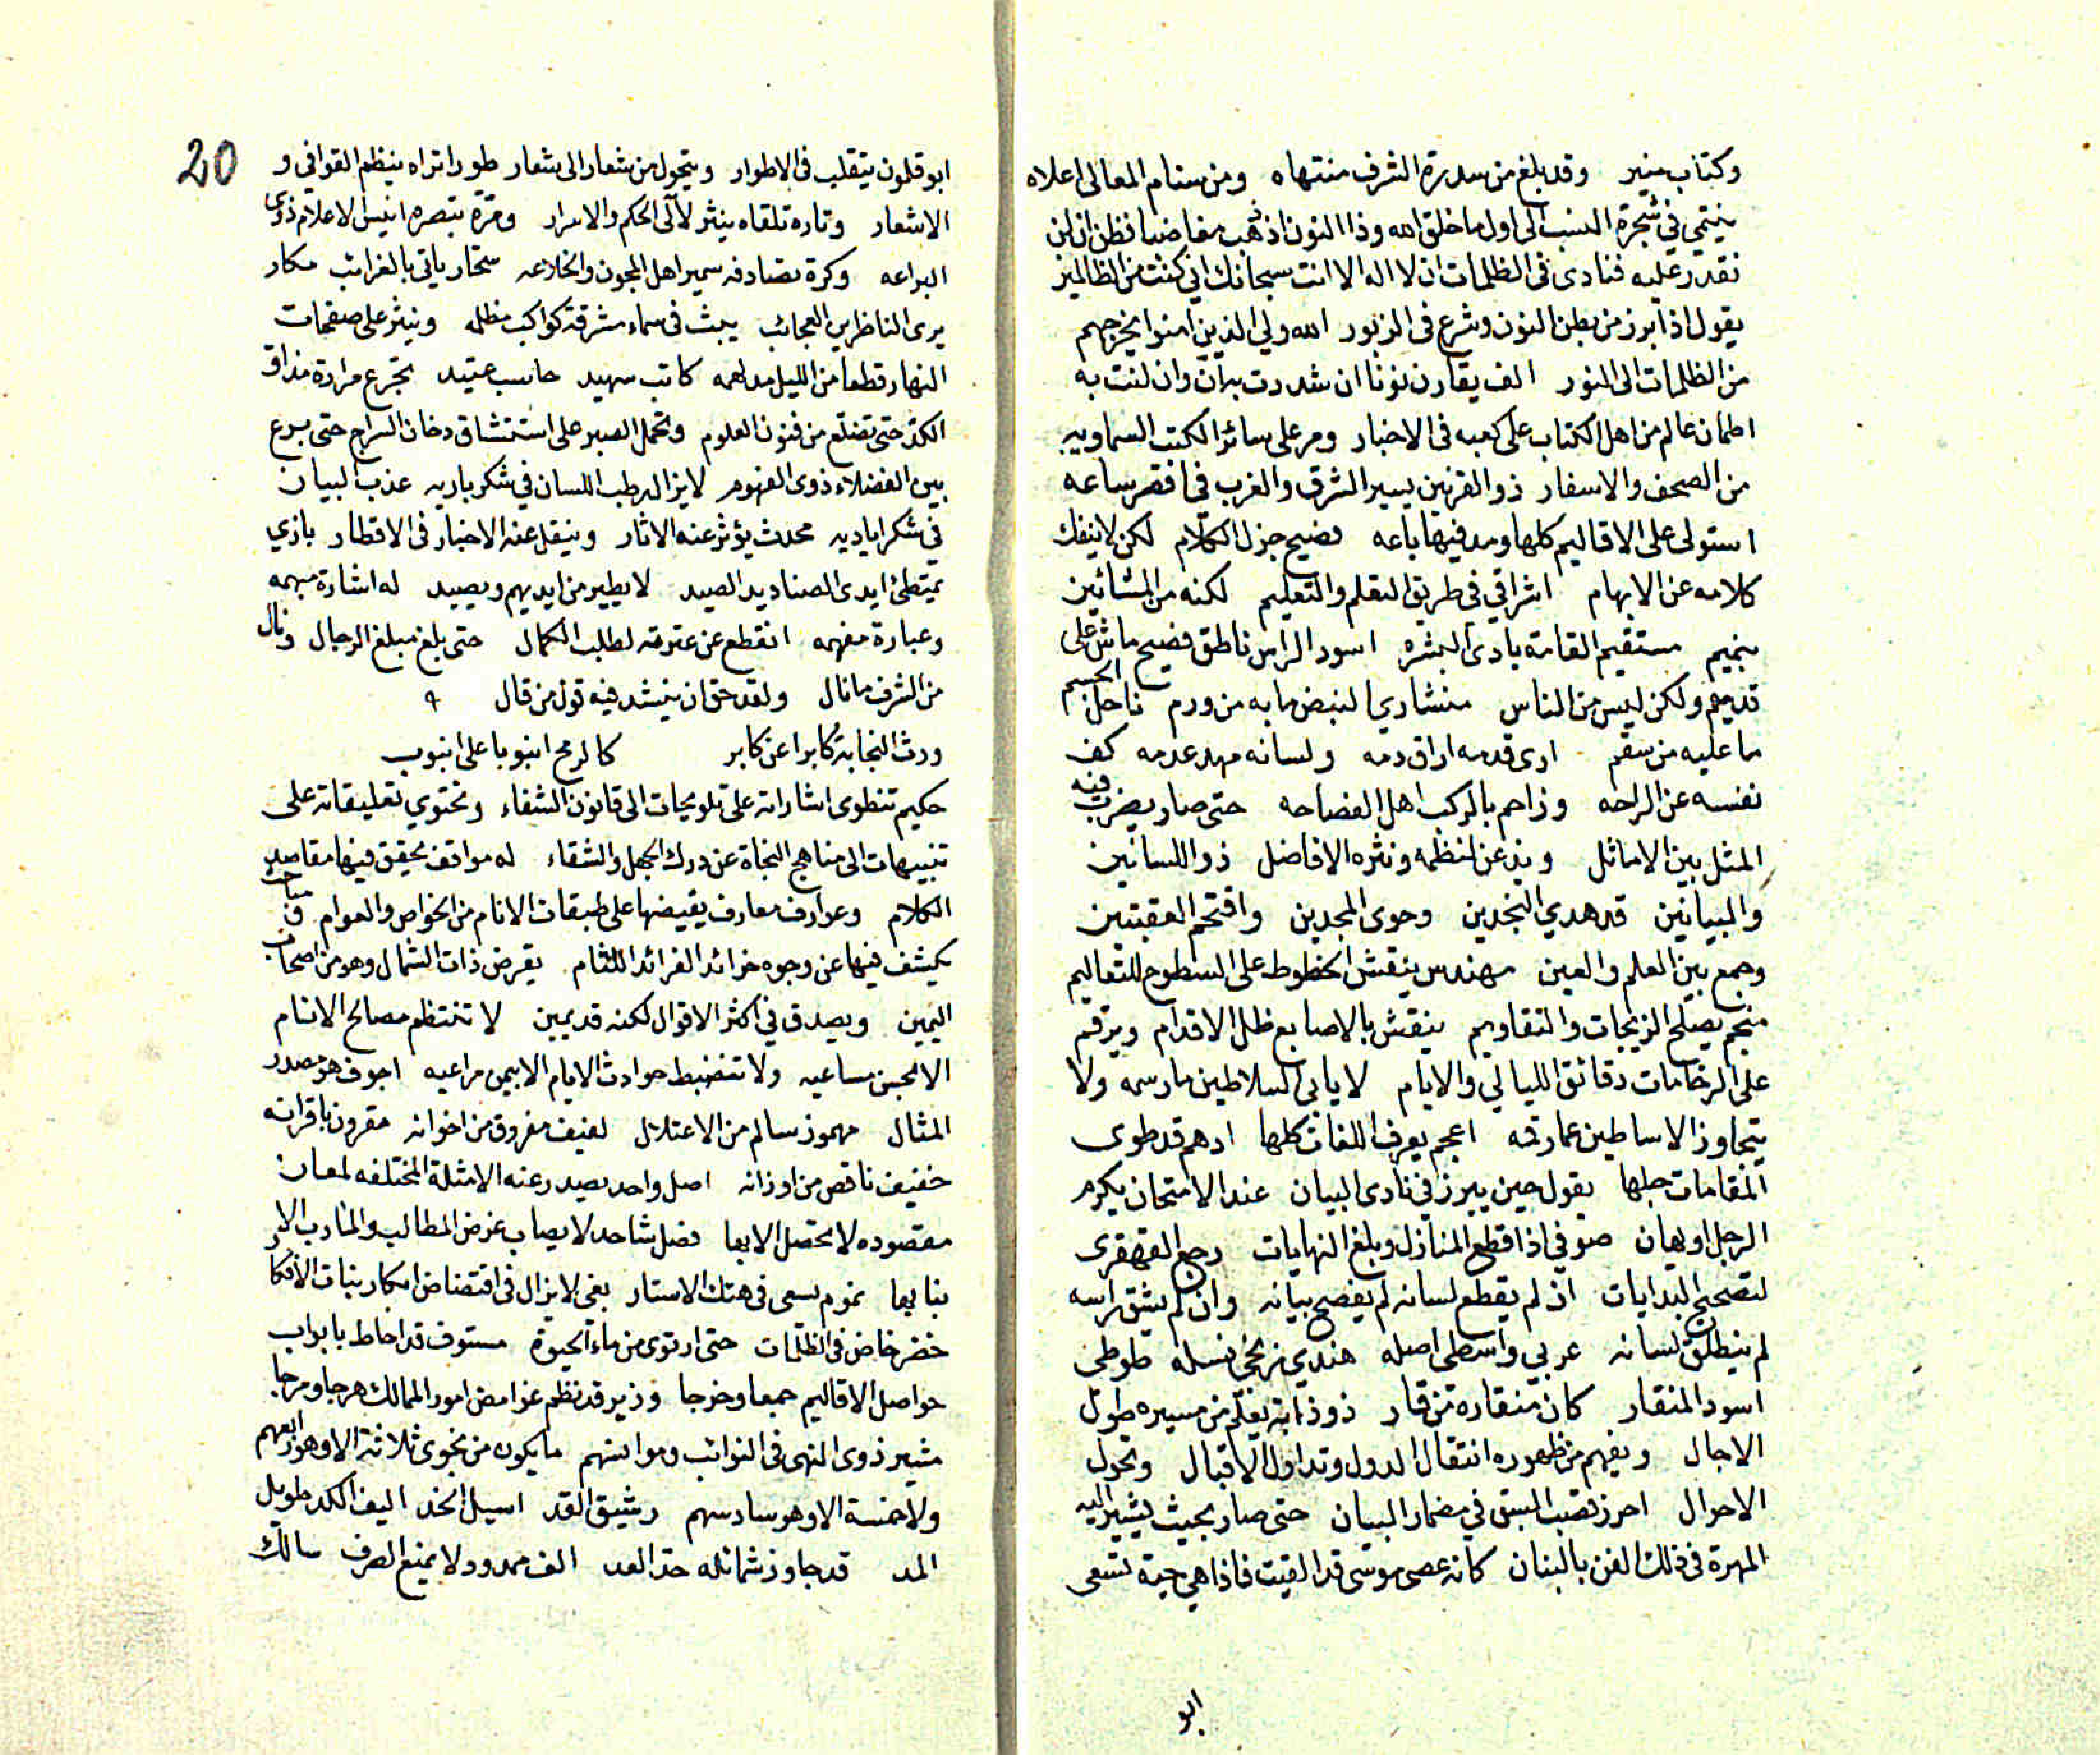 وكتاب منير وقد بلغ من سدرة الشرف منتهاه ومن سنام المعالى اعلاه
ينتمى في شجرة النسب الى اول ما خلق الله وذا النون اذ ذهب مغاضبا فظن ان لن
نقدر عليه فنادى فى الظلمات ان لا اله الا انت سبحانك اني كنت من الظالمين
يقول اذا برز من بطن النون وشرع فى الزبور الله ولي الذين امنوا يخرجهم
من الظلمات الى النور الف يقارن نونا ان شددت به ان وان لنت به
اطمان عالم من اهل الكتاب على كعبه فى الاخبار ومر على سائر الكتب السماويه
من الصحف والاسفار ذو القرنين يسير الشرق والغرب في اقصر ساعه
استولى على الاقاليم كلها ومد فيها باعه فصيح جزل الكلام لكن لا ينفك
كلامه عن الابهام اشراقي فى طريق التعلم والتعليم لكنه من المشائين
بنميم مستقيم القامة بادى البشره اسود الراس ناطق فصيح ماش على
قدميه ولكن ليس من الناس منشاري النبض ما به من ورم ناحل الجسم
ما عليه من سقم ادى قدمه اراق دمه ولسانه مهد عدمه كف
نفسه عن الراحه وزاحم بالركب اهل الفصاحه حتى صار يضرب فيه
المثل بين الاماثل ويذعن لنظمه ونثره الافاضل ذو اللسانين
والبيانين قد هدي النجدين وحوى المجدين واقتحم العقبتين
وجمع بين العلم والعين مهندس ينقش الخطوط على السطوح للتعاليم
منجم يصلح الزيجات والتقاويم ينقش بالاصابع ظل الاقدام ويرقم
على الرخامات دقائق الليالي والايام لا يابى السلاطين ما رسمه ولا
يتجاوز الاساطين عما رقمه اعجم يعرف اللغات كلها ادهم قد طوى
المقامات جلها يقول حين يبرز في نادى البيان عند الامتحان يكرم
الرجل او يهان صوفي اذا قطع المنازل وبلغ النهايات رجع القهقرى
لتصحيح البدايات ان لم يقطع لسانه لم يفصح بيانه وان لم يشق راسه
لم ينطلق لسانه عربي واسطي اصله هندي زنجي نسله طوطى
اسود المنقار كان منقاره من قار ذو ذابة يعلم من مسيره طول
الاجال ويفهم من ظهوره انتقال الدول وتداول الاقبال وتحول
الاحوال احرز قصب السبق في مضمار البيان حتى صار بحيث يشير اليه
المهرة فى ذلك الفن بالبنان كانه عصى موسى قد القيت فاذا هي حية تسعى
ابو
20
ابو قلون يتقلب فى الاطوار ويتحول من شعار الى شعار طورا تراه ينظم القوافى و
الاشعار وتارة تلقاه ينثر لآلى الحكم والاسرار ومرة تبصره انيس الاعلام ذوى
البراعه وكرة تصادفه سمير اهل المجون والخلاعه سحار ياتي بالغرائب مكار
يرى الناظرين العجائب يبث فى سماء مشرقة كواكب مظلمه وينثر على صفحات
النهار قطعا من الليل مدلهمه كاتب شهيد حاسب عتيد تجرع مرارة مذاق
الكد حتى تضلع من فنون العلوم وتحمل الصبر على استنشاق دخان السراج حتى برع
بين الفضلاء ذوى الفهوم لا يزال رطب اللسان في شكر باريه عذب البيان
في شكر اياديه محدث يؤثر عنه الاثار وينقل عنه الاخبار فى الاقطار بازي
يمتطئ ايدى الصناديد الصيد لا يطير من ايديهم ويصيد له اشارة مبهمه
وعبارة مفهمه انقطع عن عترته لطلب الكمال حتى بلغ مبلغ الرجال ونال
من الشرف ما نال ولقد حق ان ينشد فيه قول من قال
ورث النجابة كابرا عن كابر كالرمح انبوبا على انبوب
حكيم تنطوى اشاراته على تلويحات الى قانون الشفاء وتحتوي تعليقاته على
تنبيهات الى مناهج النجاة عن درك الجهل والشقاء له مواقف يحقق فيها مقاصد
الكلام وعوارف معارف يفيضها على طبقات الانام من الخواص والعوام و مباحث
يكشف فيها عن وجوه خرائد الفرائد اللثام يقرض ذات الشمال وهو من اصحاب
اليمين ويصدق في اكثر الاقوال لكنه قد يمين لا تنتظم مصالح الانام
الا بحسن مساعيه ولا تنضبط حوادث الايام الا بيمن مراعيه اجوف هو مصدر
المثال مهموز سالم من الاعتلال لفيف مفروق من اخوانه مقرون باقرانه
خفيف ناقص من اوزانه اصل واحد يصدر عنه الامثلة المختلفه لمعان
مقصوده لا تحصل الا بها فصل شاحد لا يصاب غرض المطالب والمارب الا
بنابها نموم يسعى فى هتك الاستار بغى لا يزال فى افتضاض ابكار بنات الافكار
خضر خاض فى الظلمات حتى ارتوى من ماء الحيوة مستوف قد احاط بابواب
حواصل الاقاليم جمعا وخرجا وزير قد نظم غوامض امور الممالك هرجا ومرجا
مشير ذوى النهى فى النوائب ومؤانسهم ما يكون من نجوى ثلاثة الا وهو رابعهم
ولا خمسة الا وهو سادسهم رشيق القد اسيل الخد اليف الكد طويل
المد قد جاوز شمائله حد العد الف ممدود لا يمنع الصرف سالك